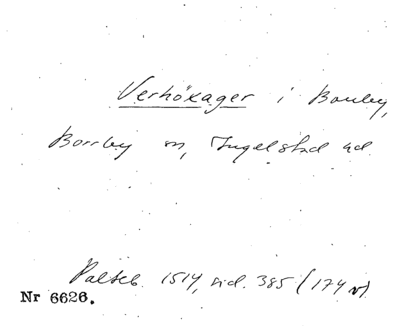 Verhöxager i Borrby,
Borrby sn, Ingelstad hd.
Palteb. 1514, sid. 385 (174 v).
Nr 6626.